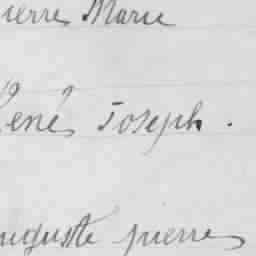 ierre Marie
René Joseph.
uguste pierre